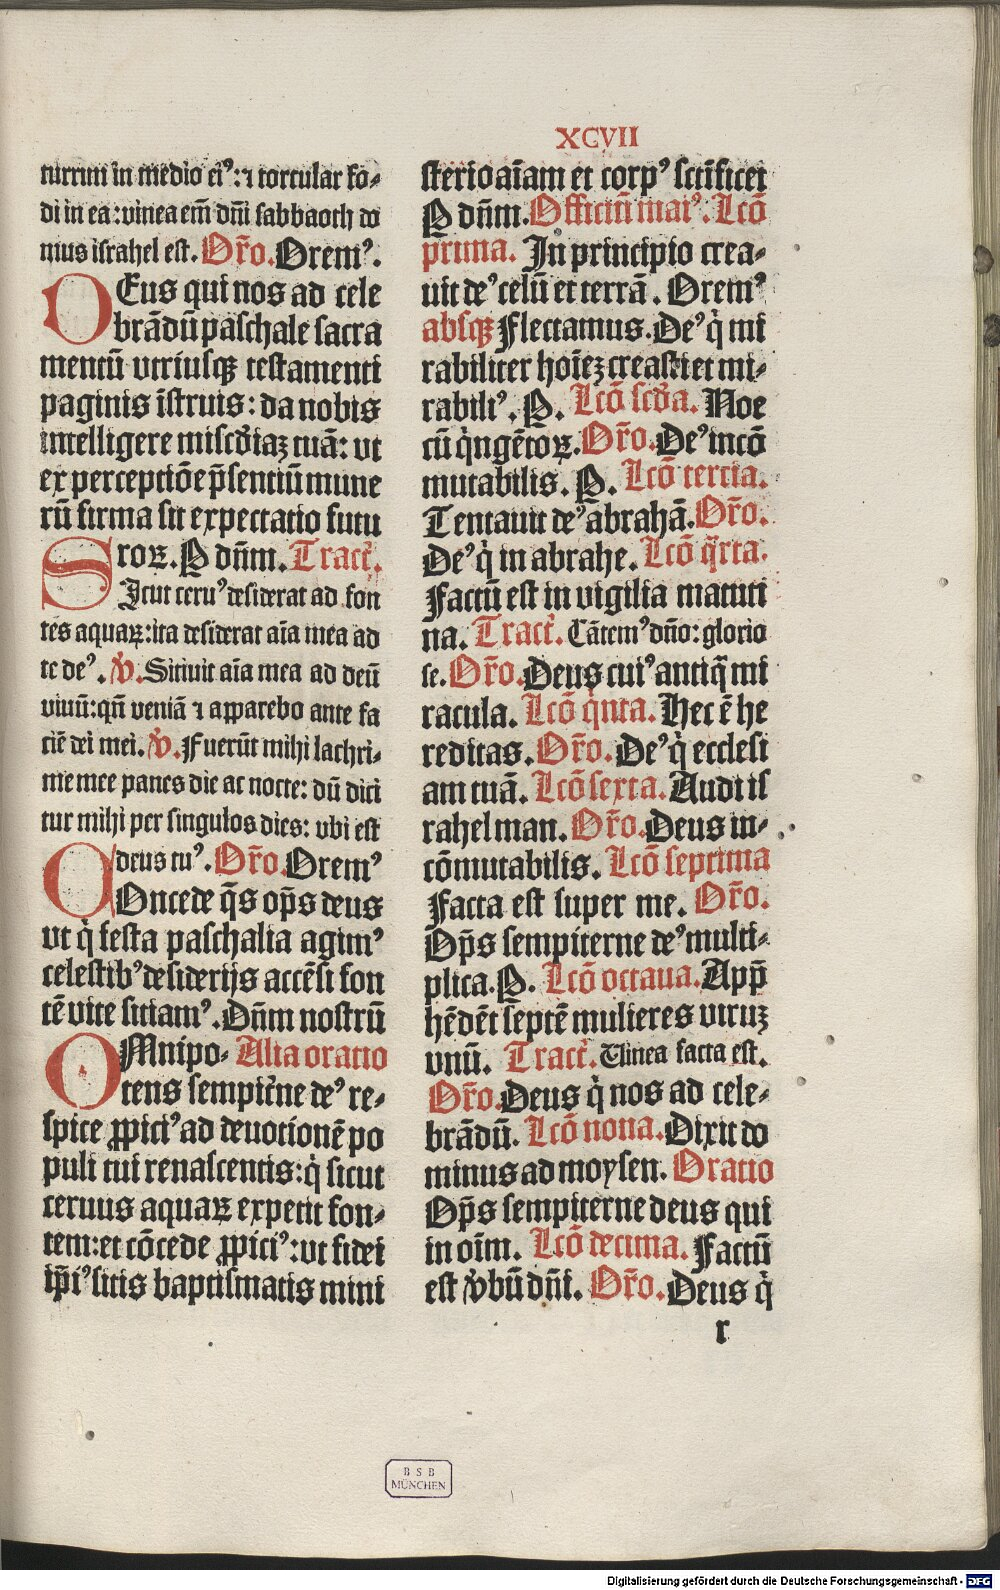 XCVII
turrim in medio ei⁹: ⁊ torcular fo-
di in ea: vinea em̄ dn̄i sabbaoth do
mus israhel est. Or̄o. Orem⁹.
DEus qui nos ad cele
brādū paschale sacra
mentū vtriusqꝫ testamenti
paginis īstruis: da nobis
intelligere mīscd̄iaꝫ tuā: ut
ex perceptiōe p̄sentiū mune
rū firma sit expectatio futu
roꝝ. P dn̄m. Tract⁹.
SIcut ceru⁹ desiderat ad fon
tes aquaꝝ: ita desiderat aīa mea ad
te de⁹. ℣. Sitiuit aīa mea ad deū
viuū: qn̄ veniā ⁊ apparebo ante fa
ciē dei mei. ℣. Fuerūt mihi lachri-
me mee panes die ac nocte: dū dici
tur mihi per singulos dies: vbi est
deus tu⁹. Or̄o. Orem⁹
COncede q̄s op̄s deus
vt q̇ festa paschalia agim⁹
celestib⁹ desiderijs accēsi fon
tē vite sitiam⁹. Dn̄m nostrū
OMnipo- Alia oratio
tens sempit̄ne de⁹ re-
spice ꝓpici⁹ ad deuotionē po
puli tui renascentis: q̇ sicut
ceruus aquaꝝ expetit fon-
tem: et cōcede ꝓpici⁹: ut fidei
ip̄i⁹ sitis baptismatis mini
sterio aīam et corp⁹ sctīficet
P dn̄m. Officiū mai⁹. Lcō
prima. In principio crea-
uit de⁹ celū et terrā. Orem⁹
absqꝫ Flectamus. De⁹ q̇ mi
rabiliter hoīeꝫ creasti et mi-
rabili⁹. P. Lcō scd̄a. Noe
cū q̇ngētoꝝ. Or̄o. De⁹ incō
mutabilis. P. Lcō tertia.
Tentauit de⁹ abrahā. Or̄o.
De⁹ q̇ in abrahe. Lcō q̄rta.
Factū est in vigilia matuti
na. Tract⁹. Cātem⁹ dn̄o: glorio
se. Or̄o. Deus cui⁹ antiq̄ mi
racula. Lcō q̇nta. Hec ē he
reditas. Or̄o. De⁹ q̇ ecclesi
am tuā. Lcō sexta. Audi is
rahel man. Or̄o. Deus in-
cōmutabilis. Lcō septima
Facta est super me. Or̄o.
Op̄s sempiterne de⁹ multi-
plica. P. Lcō octaua. App̄
hēdēt septē mulieres viruꝫ
vnū. Tract⁹. Vinea facta est.
Or̄o. Deus q̇ nos ad cele-
brādū. Lcō nona. Dixit do
minus ad moysen. Oratio
Op̄s sempiterne deus qui
in oīm. Lcō decima. Factū
est v̄bū dn̄i. Or̄o. Deus q̇
r
BSB
MÜNCHEN
Digitalisierung gefördert durch die Deutsche Forschungsgemeinschaft - DFG